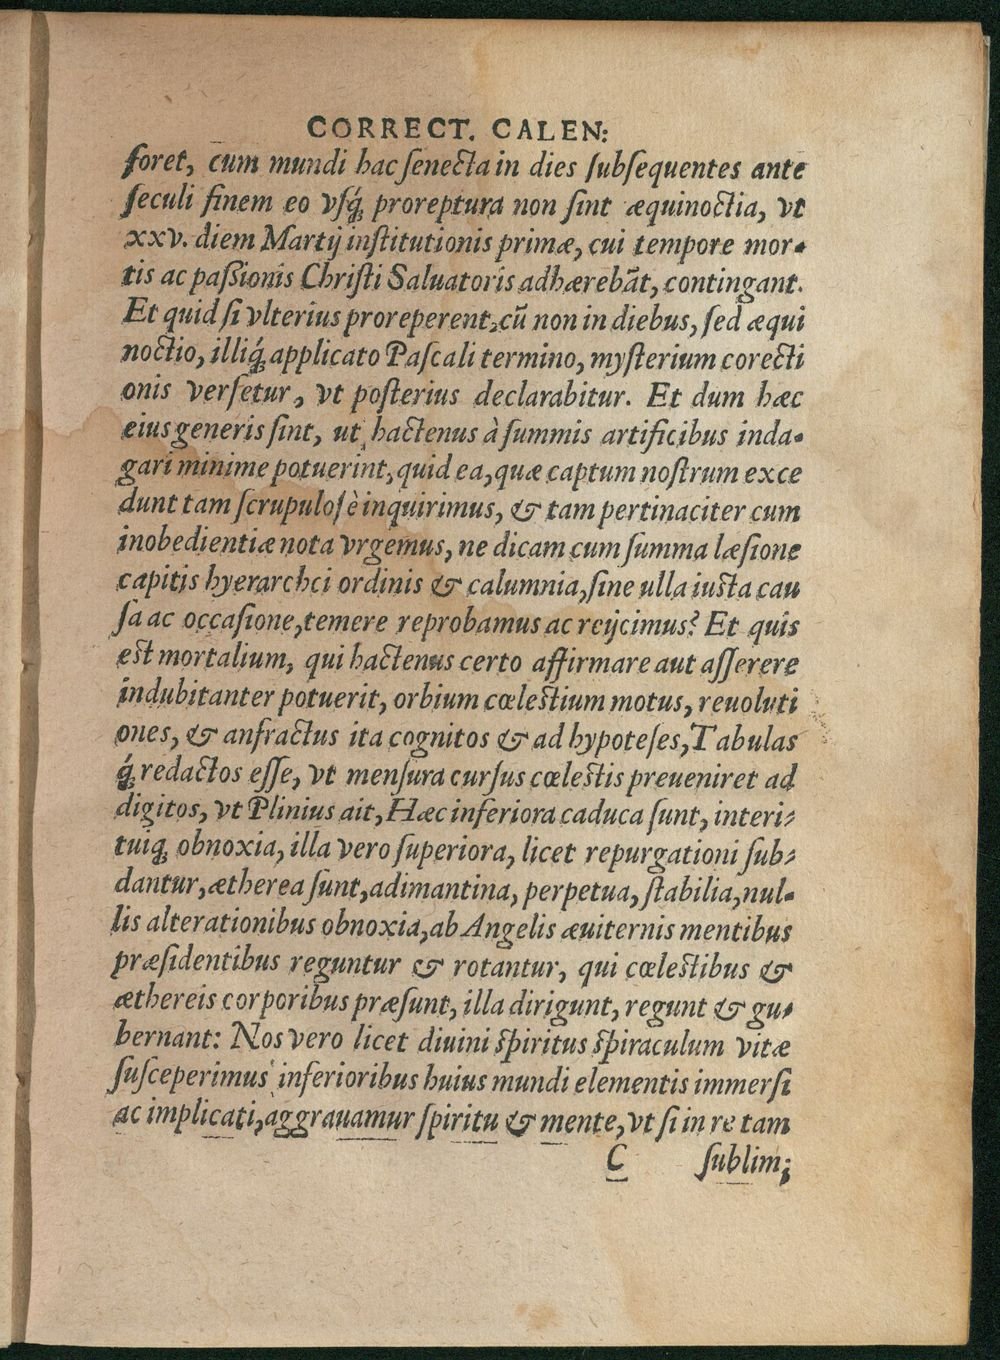 CORRECT. CALEN:
foret, cum mundi hac ſenecta in dies ſubſequentes ante
ſeculi finem eo vſq́; proreptura non ſint æquinoctia, vt
xxv. diem Martij inſtitutionis primæ, cui tempore mor-
tis ac paſsionis Chriſti Saluatoris adhærebãt, contingant.
Et quid ſi vlterius proreperent, cũ non in diebus, ſed æqui
noctio, illiq́; applicato Paſcali termino, myſterium corecti
onis verſetur, vt poſterius declarabitur. Et dum hæc
eius generis ſint, ut hactenus à ſummis artificibus inda-
gari minime potuerint, quid ea, quæ captum noſtrum exce
dunt tam ſcrupuloſè inquirimus, & tam pertinaciter cum
inobedientiæ nota vrgemus, ne dicam cum ſumma læſione
capitis hyerarchci ordinis & calumnia, ſine ulla iusta cau
ſa ac occaſione, temere reprobamus ac reijcimus? Et quis
est mortalium, qui hactenus certo affirmare aut aſſerere
indubitanter potuerit, orbium cœlestium motus, reuoluti
ones, & anfractus ita cognitos & ad hypoteſes, Tabulas
q́; redactos eſſe, vt menſura curſus cœlestis preueniret ad
digitos, vt Plinius ait, Hæc inferiora caduca ſunt, interi-
tuiq; obnoxia, illa vero ſuperiora, licet repurgationi ſub-
dantur, ætherea ſunt, adimantina, perpetua, ſtabilia, nul-
lis alterationibus obnoxia, ab Angelis æuiternis mentibus
præſidentibus reguntur & rotantur, qui cœlestibus &
æthereis corporibus præſunt, illa dirigunt, regunt & gu-
bernant: Nos vero licet diuini ſpiritus ſpiraculum vitæ
ſuſceperimus inferioribus huius mundi elementis immerſi
ac implicati, aggrauamur ſpiritu & mente, vt ſi in re tam
C ſublimi